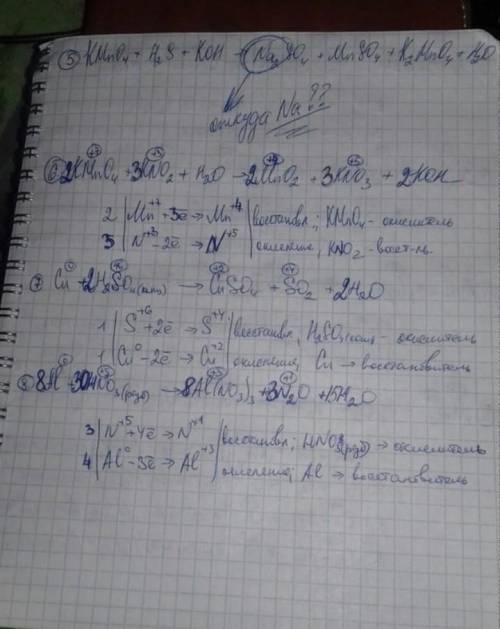 ⑤ KMnO₄ + H₂S + KOH → Na₂SO₄ + MnSO₄ + K₂MnO₄ + H₂O
откуда Na??
⑥ 2KMnO₄ + 3KNO₂ + H₂O → 2MnO₂ + 3KNO₃ + 2KOH
2 | Mn⁺⁷ + 3ē → Mn⁺⁴ | восстановл.; KMnO₄ - окислитель
3 | N⁺³ - 2ē → N⁺⁵ | окисление, KNO₂ - восст-ль.
⑦ Cu⁰ + 2H₂SO₄(конц) → CuSO₄ + SO₂ + 2H₂O
1 | S⁺⁶ + 2ē → S⁺⁴ | восстановл, - окислитель
1 | Cu⁰ - 2ē → Cu⁺² | окисление, Cu → восстановитель
⑧ 8Al + 30HNO₃(разб) → 8Al(NO₃)₃ + 3N₂O + 15H₂O
3 | N⁺⁵ + 4ē → N⁺¹ | восстановл; HNO₃(разб) → окислитель
4 | Al⁰ - 3ē → Al⁺³ | окисление; Al → восстановитель